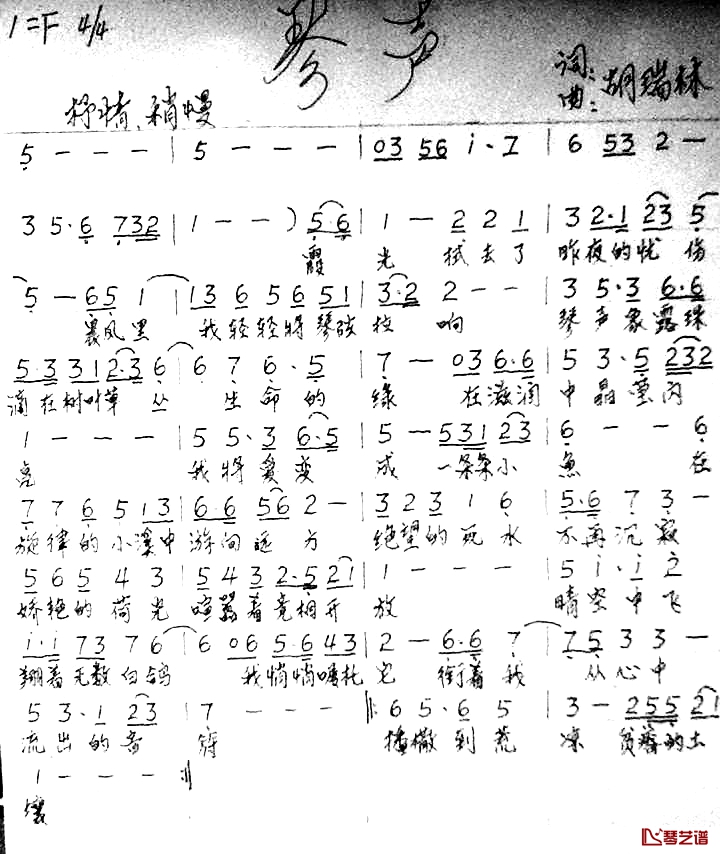 1=F 4/4 琴声
词: 曲: 胡瑞林
抒情、稍慢
5 - - - | 5 - - - | 03 56 i·7 | 6 53 2 -
3 5·6 732 | 1 - - ) 5·6 | 1 - 2 2 1 | 3 2·1 23 5
霞 光 拭去了 昨夜的忧伤
5 - 65 1 | 13 6 5 6 51 | 3·2 2 - - | 3 5·3 6·6
晨风里 我轻轻将琴弦 拉 响 琴声象露珠
5·3 31 2·3 6 | 6 7 6·5 | 7 - 03 6·6 | 5 3·5 232
滴在树叶草丛 生命的 绿 在滋润 中晶莹闪
1 - - - | 5 5·3 6·5 | 5 - 531 23 | 6 - - 6
亮 我将爱变 成 一条条小 鱼 在
7 7 6 5 13 | 6·6 56 2 - | 3 2 3 1 6 | 5·6 7 3 -
旋律的小溪中 游向远方 绝望的死水 不再沉寂
5 6 5 4 3 | 5 4 3 2·5 21 | 1 - - - | 5 i·i 2
娇艳的荷光 喧嚣着竞相开 放 晴空中飞
i·i 73 7 6 | 6 06 5·6 43 | 2 - 6·6 7 | 75 3 3 -
翔着无数白鸽 我悄悄嘱托 它 衔着我 从心中
5 3·1 23 | 7 - - - |: 6 5·6 5 | 3 - 255 21
流出的音 符 播撒到荒 凉 贫瘠的土
1 - - - :|
壤
琴艺谱